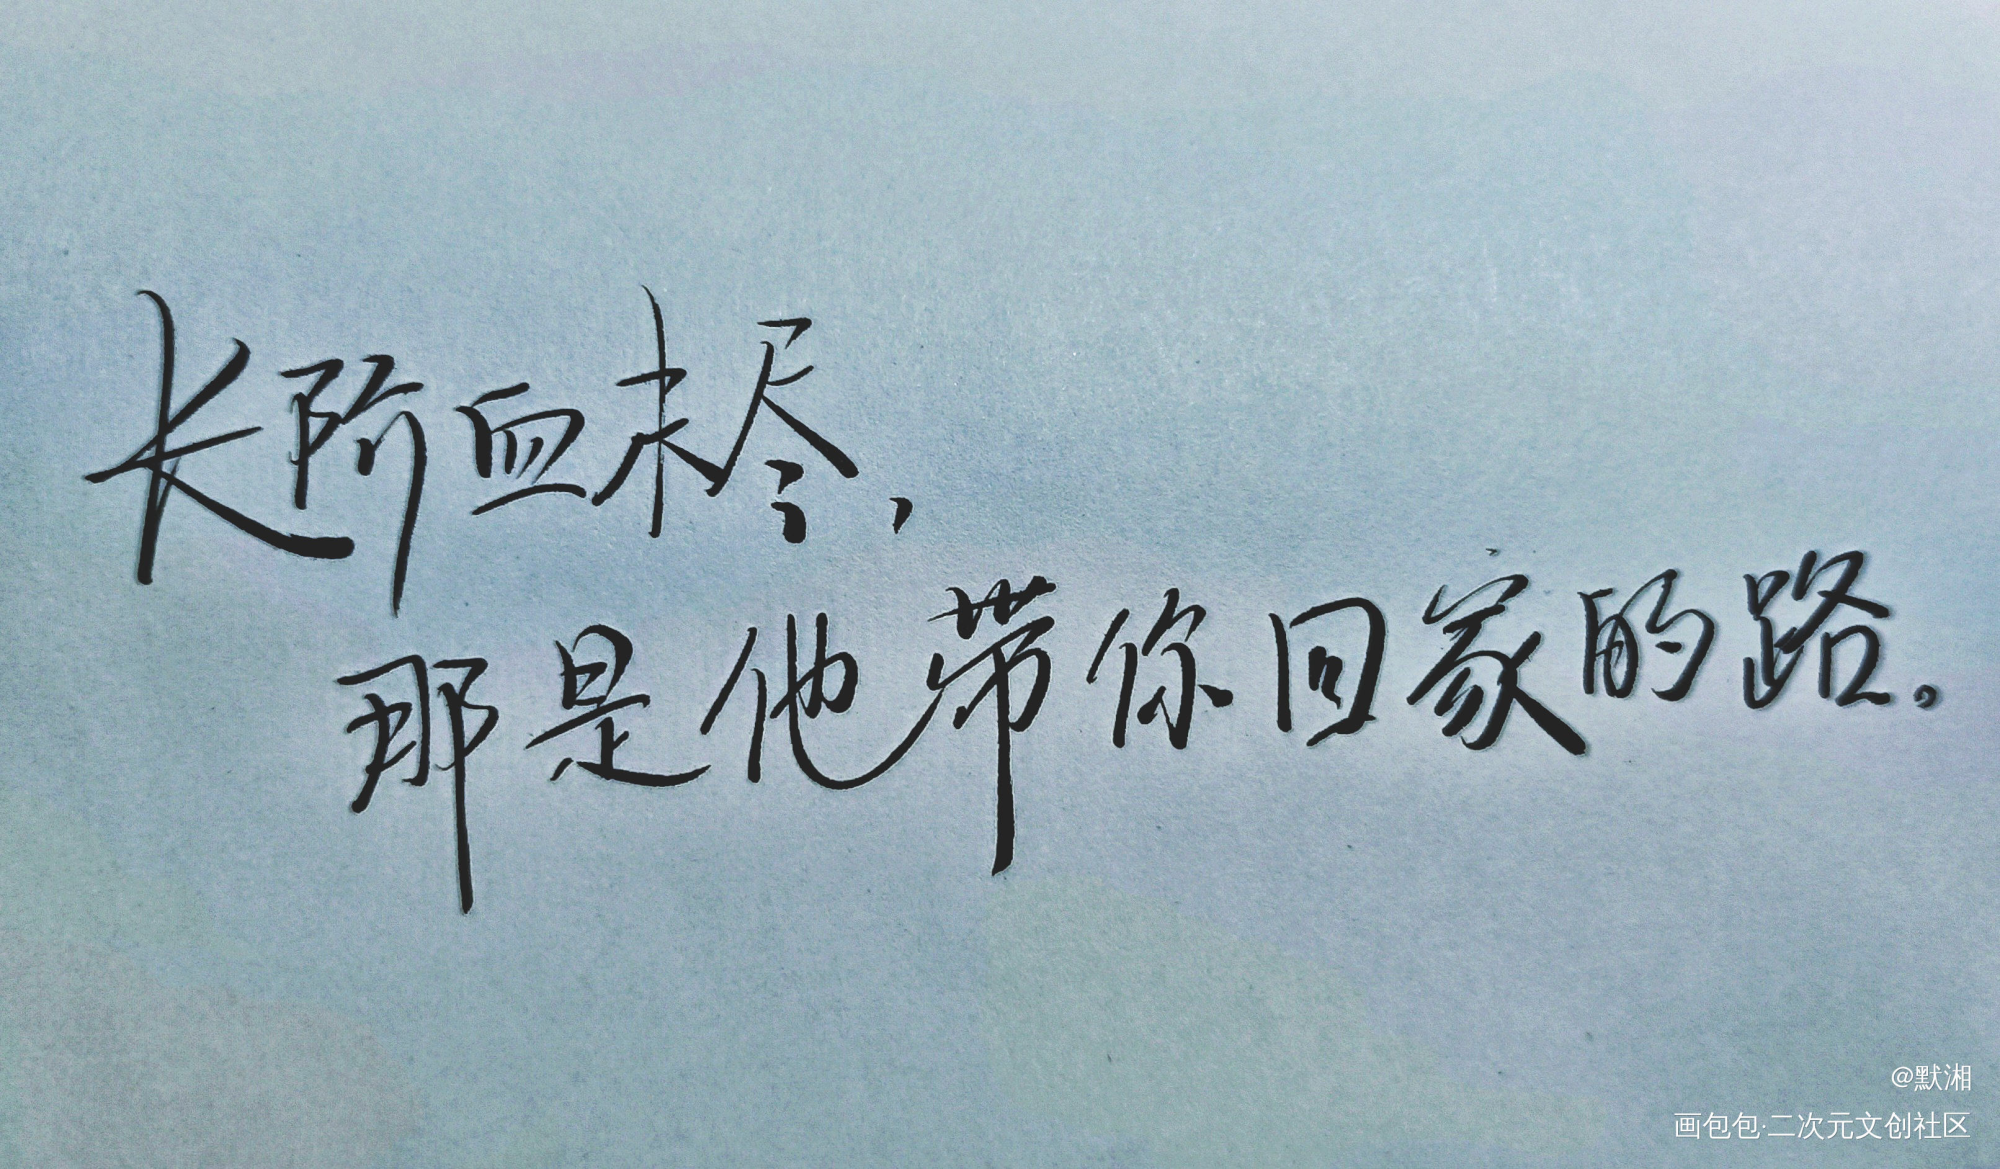 长阶血未尽，
那是他带你回家的路。
@默湘
画包包·二次元文创社区